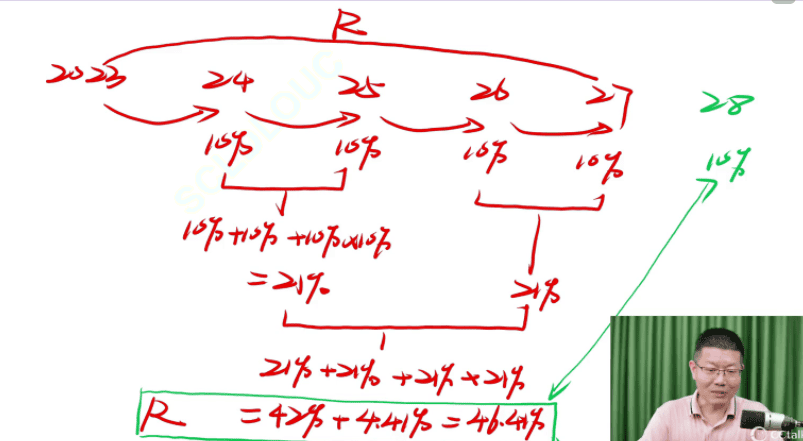 R
2023 24 25 26 27 28
10% 10% 10% 10% 10%
10%+10%+10%×10%
=21% 21%
21%+21%+21%×21%
R =42%+4.41%=46.41%
CCtalk